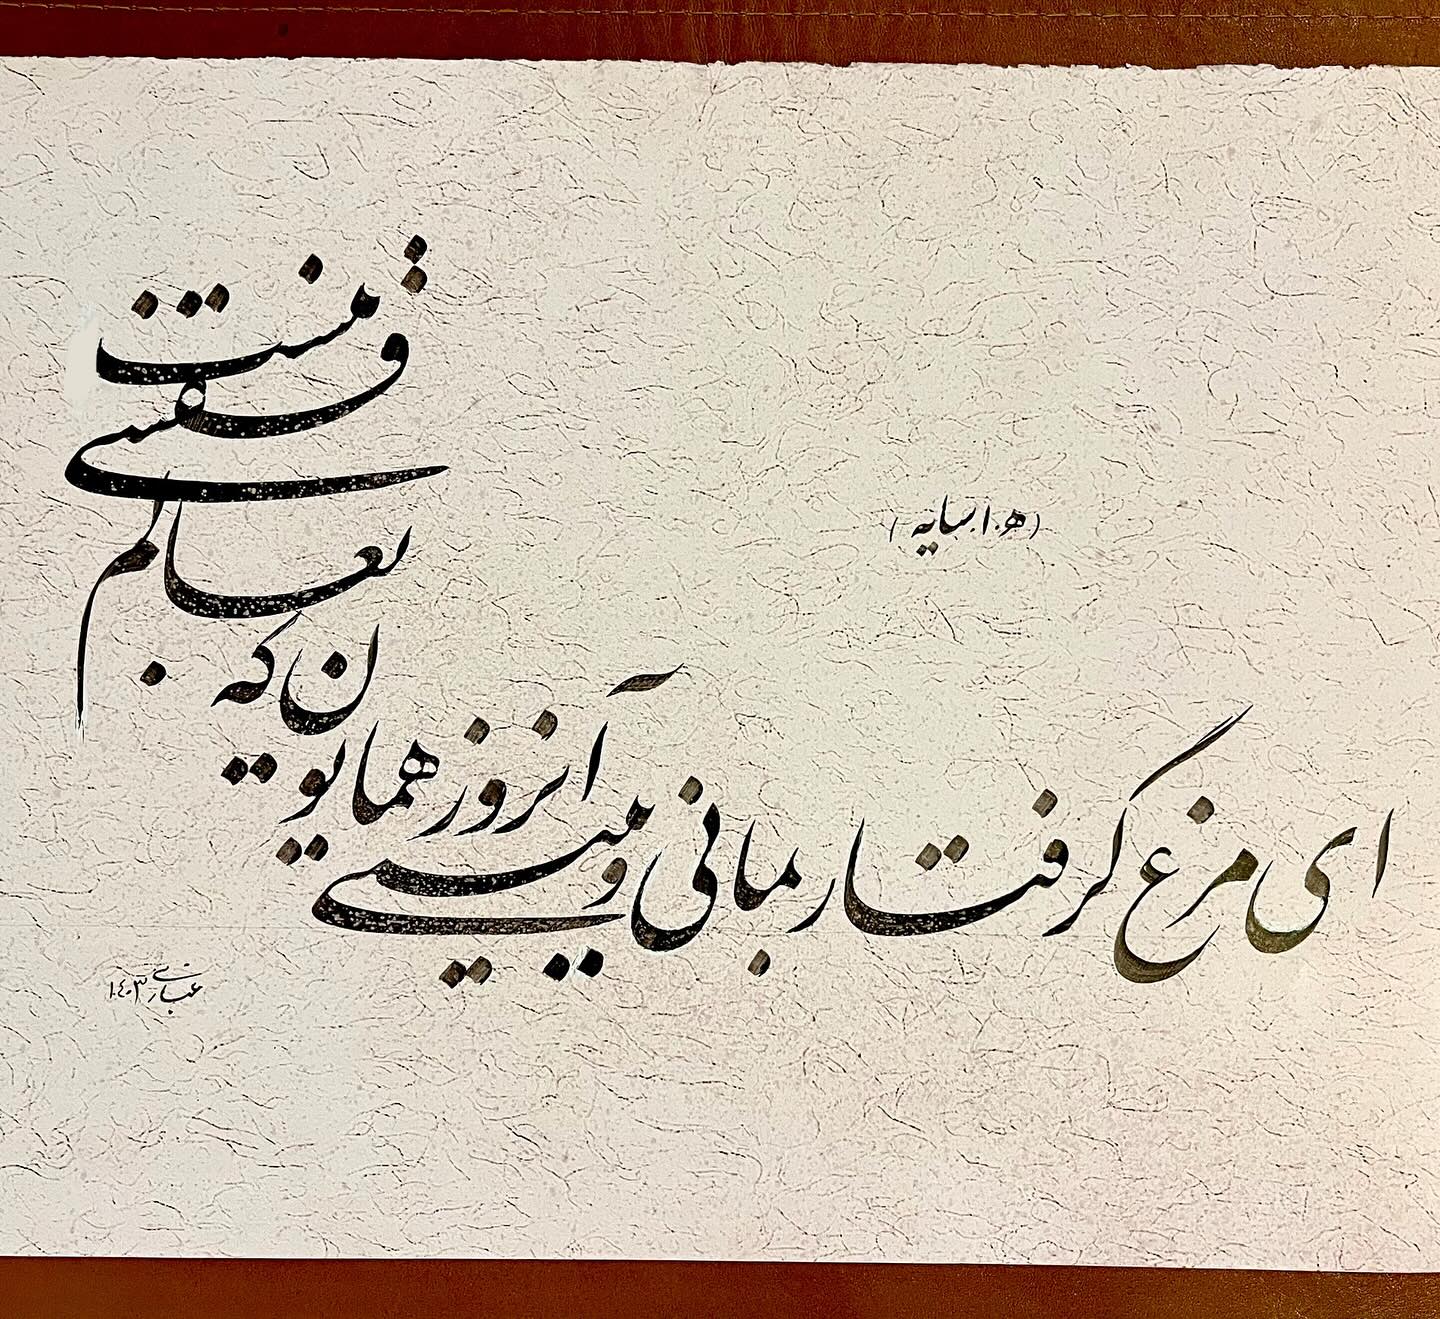 ای مرغ گرفتار بمانی و ببینی
آنروز همایون که
بعالم
قفسی
نیست
(ه.ا سایه)
عباسی ۱۴۰۳